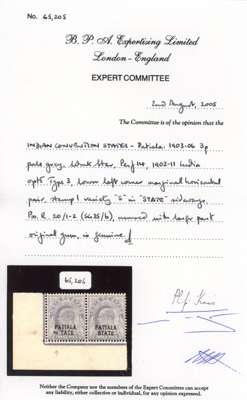 No. 65,205
B. P. A. Expertising Limited
London - England
EXPERT COMMITTEE
2nd August, 2005
The Committee is of the opinion that the
INDIAN CONVENTION STATES - Patiala: 1903-06 3p
pale grey, wmk Star, Perf 14, 1902-11 India
opt Type 3, lower left corner marginal horizontal
pair, stamp 1 variety "S" in "STATE" sideways,
R. 20/1-2 (SG35/b), unused with large part
original gum, is genuine.
65,205
PATIALA PATIALA
STATE STATE
Neither the Company nor the members of the Expert Committee can accept
any liability, either collective or individual, for any opinion expressed.